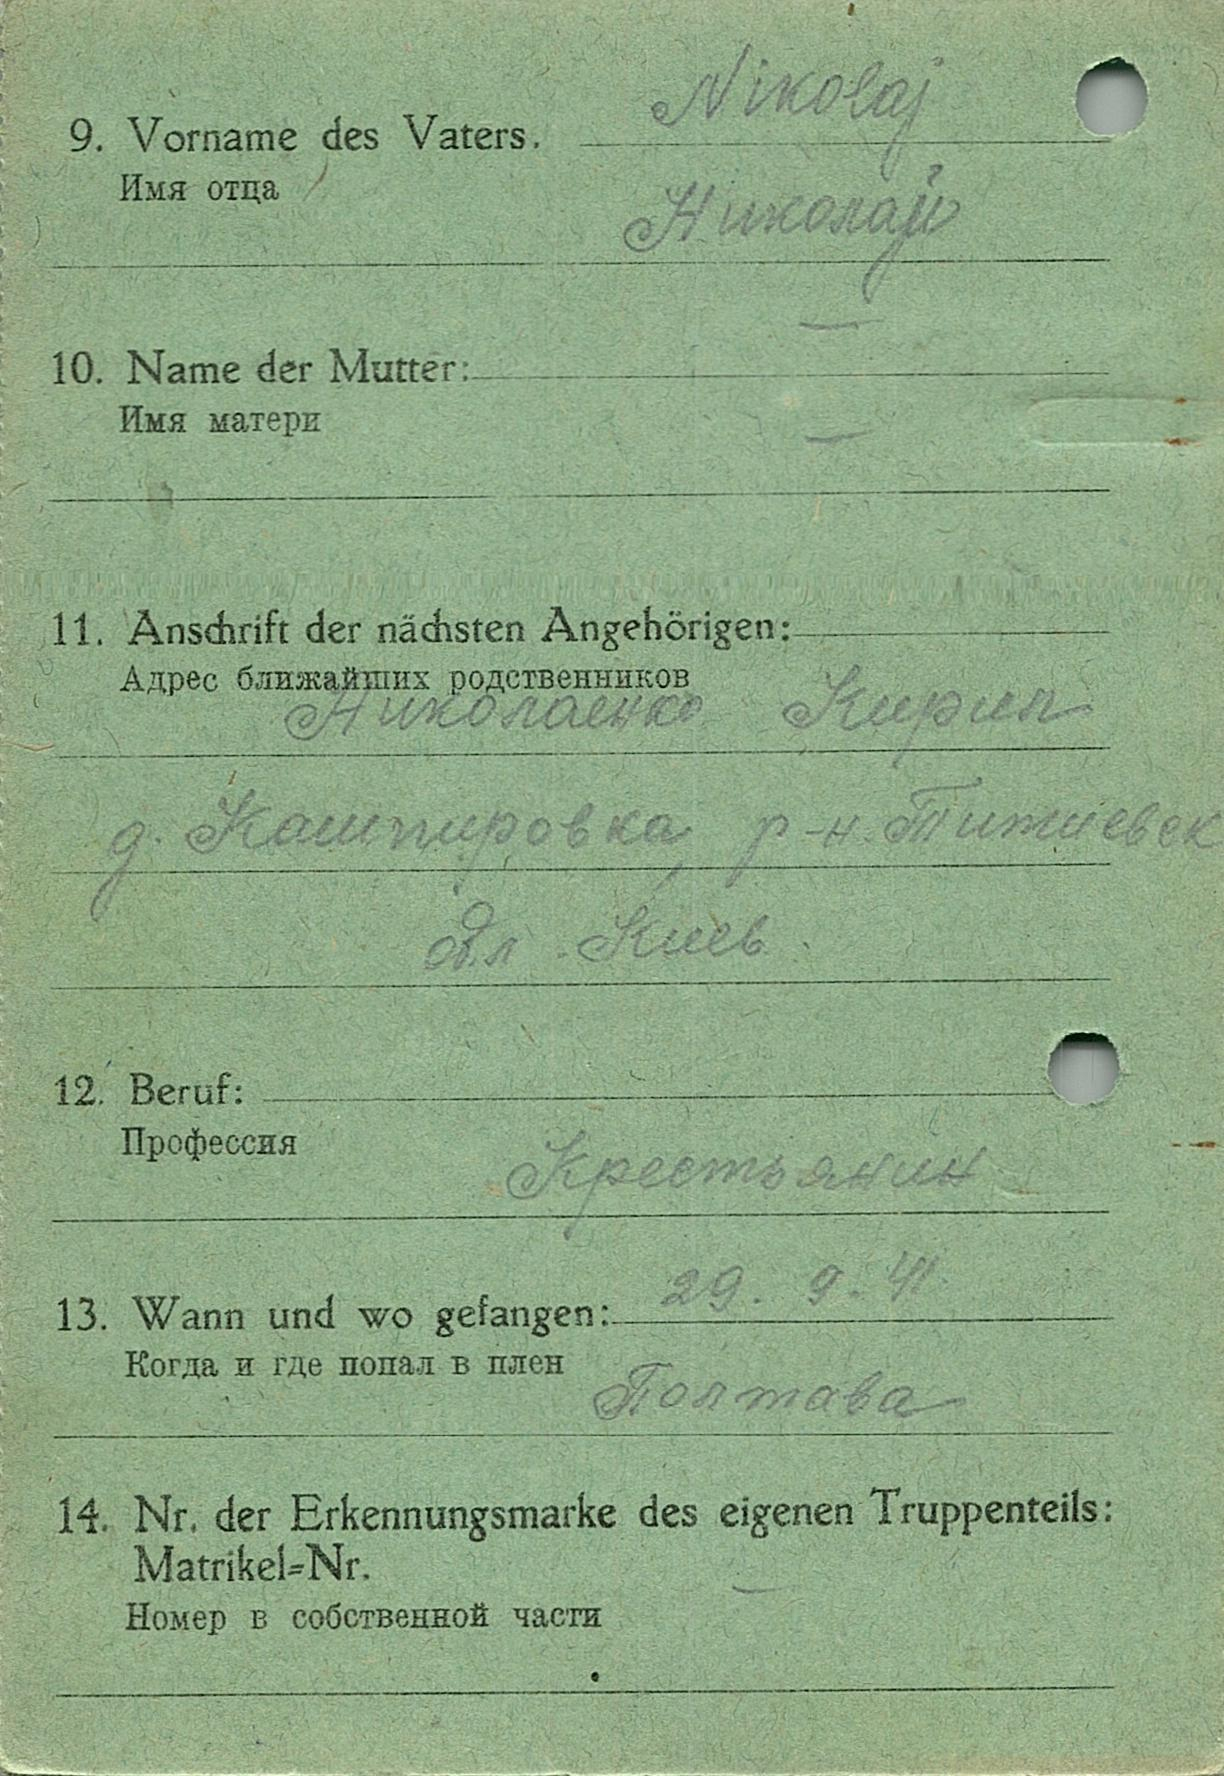 9. Vorname des Vaters. Nikolaj
Имя отца Николай
10. Name der Mutter: —
Имя матери —
11. Anschrift der nächsten Angehörigen:
Адрес ближайших родственников
Николаенко Кирил
д. Кашпировка р-н. Титиевск
обл. Киев
12. Beruf:
Профессия
Крестьянин
13. Wann und wo gefangen: 29. 9. 41
Когда и где попал в плен
Полтава
14. Nr. der Erkennungsmarke des eigenen Truppenteils:
Matrikel=Nr. —
Номер в собственной части